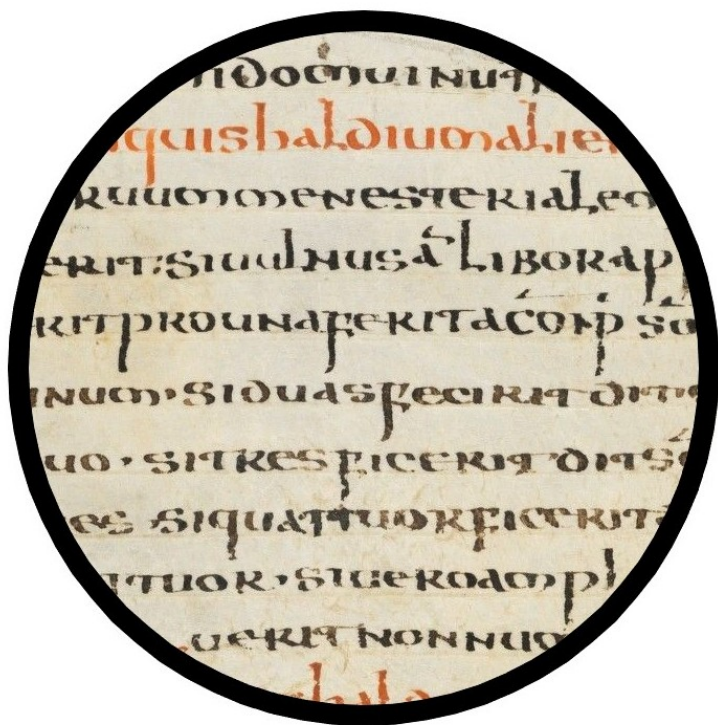 quis haldium alien
ruum menesteriale
erit: si uulnus aт libor ap
rit pro una ferita cōp so
inum · si duas fecirit dit
uo · si tres ficerit dit so
es si quattuor ficerit
ttuor · si uero ampl
uerit non nu
hald